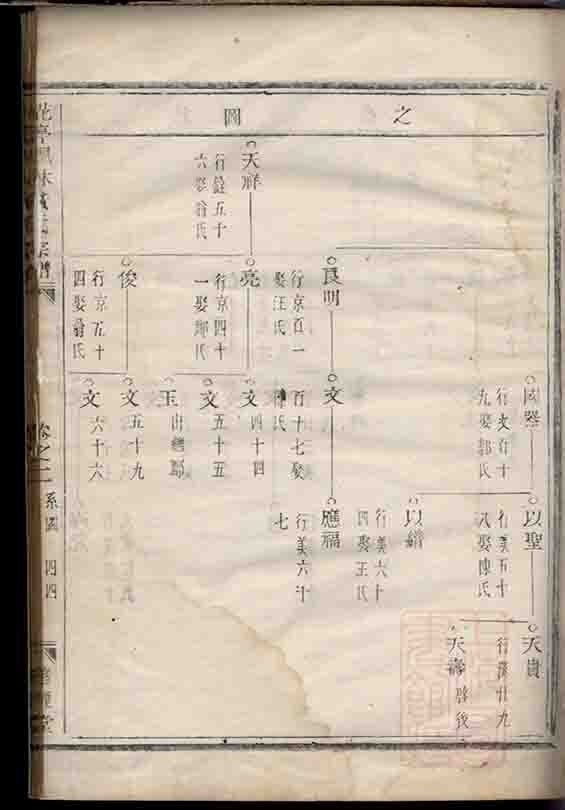 之圖
國器
行文百十
九娶郭氏
以聖
行美五十
八娶陳氏
天貴
行溥廿九
天壽
啓後
以緝
行美六十
四娶王氏
良明
行京百一
娶汪氏
文
百十七娶
陳氏
應福
行美六十
七
天祥
行銓五十
六娶翁氏
亮
行京四十
一娶鄭氏
文四十四
文五十五
玉出繼鄔
俊
行京五十
四娶翁氏
文五十九
文六十六
卷之二
系圖
四四
堂